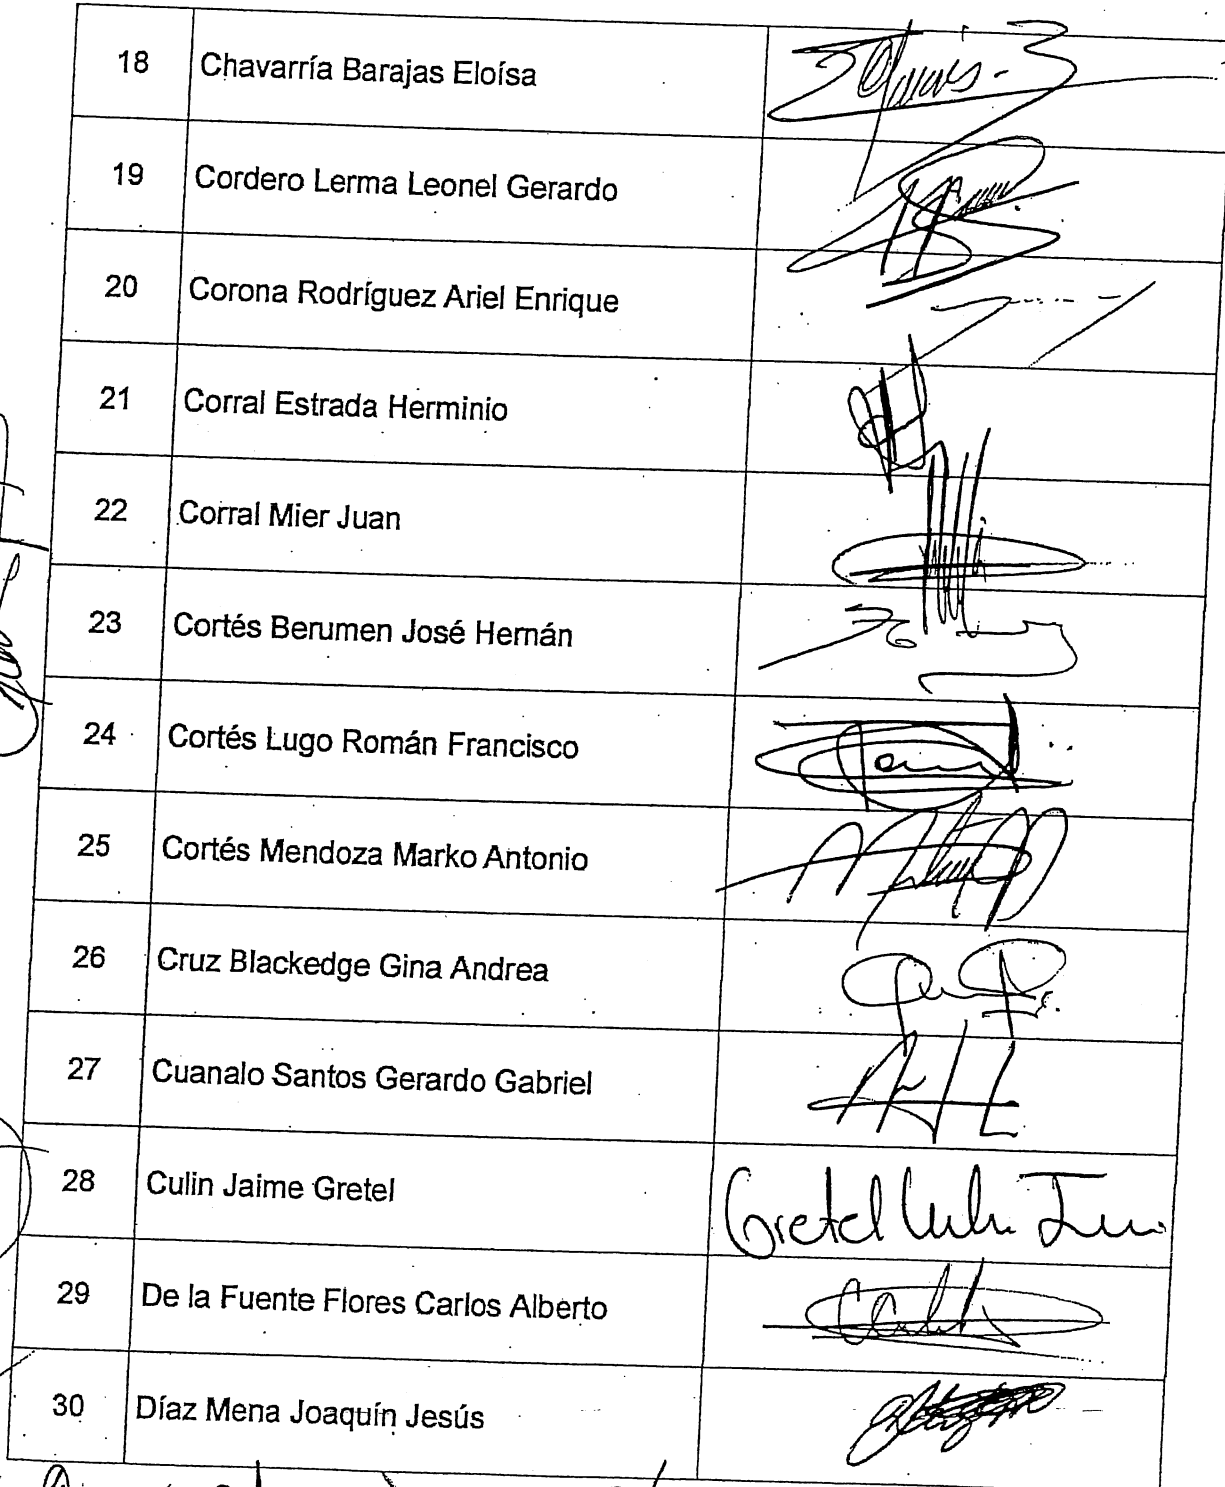 18 Chavarría Barajas Eloísa
19 Cordero Lerma Leonel Gerardo
20 Corona Rodríguez Ariel Enrique
21 Corral Estrada Herminio
22 Corral Mier Juan
23 Cortés Berumen José Hernán
24 Cortés Lugo Román Francisco
25 Cortés Mendoza Marko Antonio
26 Cruz Blackedge Gina Andrea
27 Cuanalo Santos Gerardo Gabriel
28 Culin Jaime Gretel Gretel Culin
29 De la Fuente Flores Carlos Alberto
30 Díaz Mena Joaquín Jesús